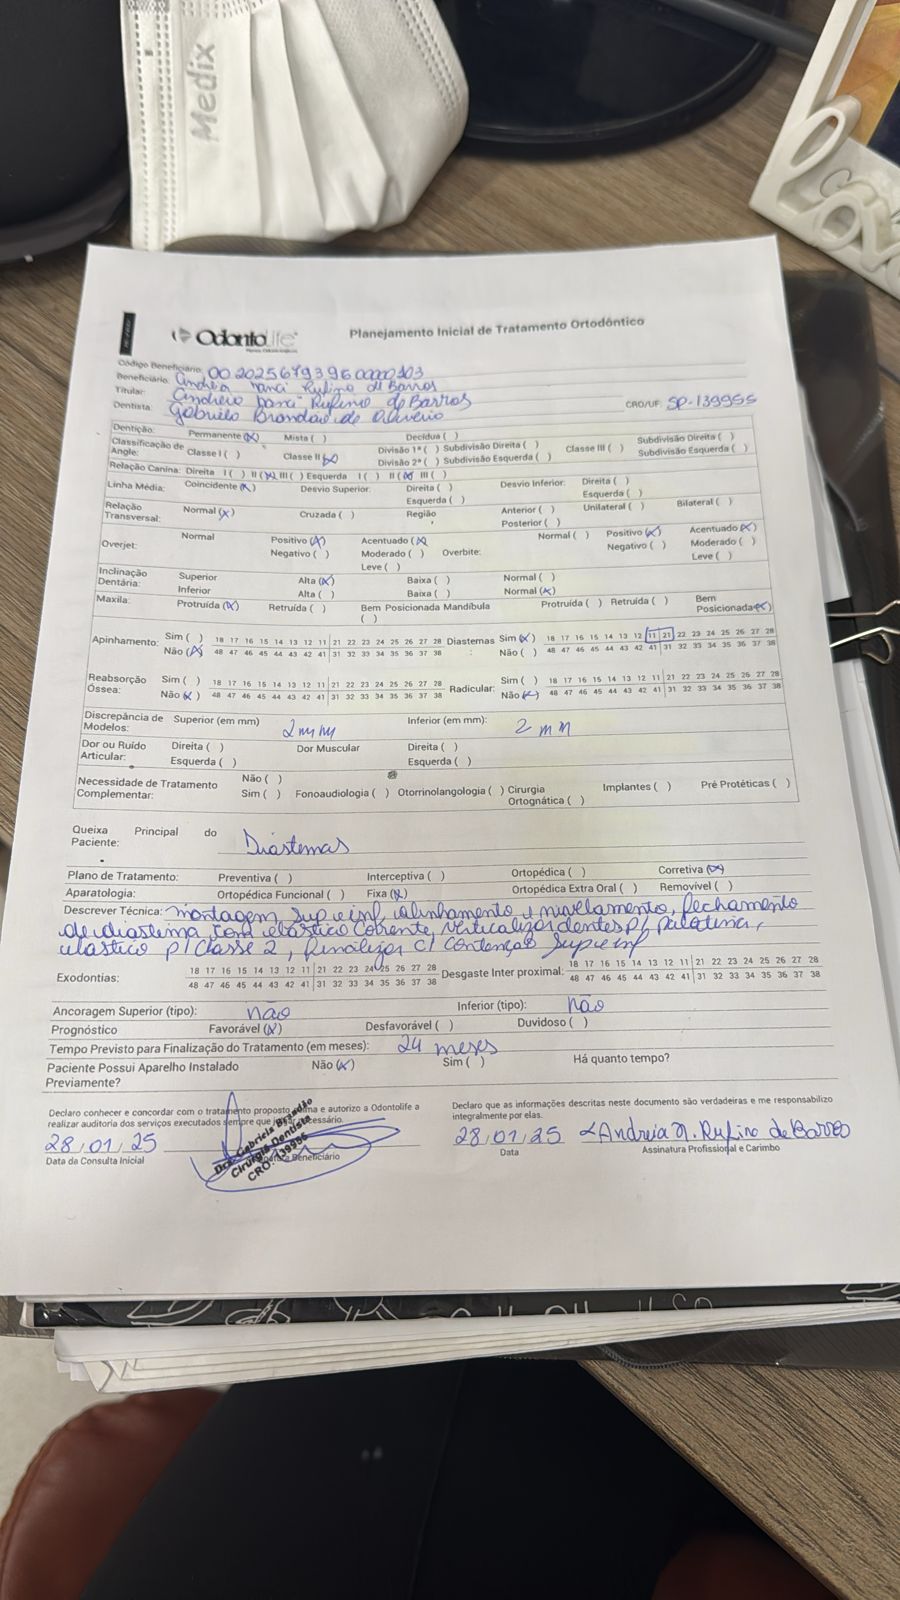 Medix
Love
OdontoLife
Planejamento Inicial de Tratamento Ortodôntico
Código Beneficiário: 00 202567939600000103
Beneficiário: Andréia Nanci Rufino de Barros
Titular: Andreia Nanci Rufino de Barros
Dentista: Gabriela Brandão de Oliveira CRO/UF: SP-139955
Dentição: Permanente (X) Mista ( ) Decídua ( )
Classificação de Angle: Classe I ( ) Classe II (X) Divisão 1ª ( ) Subdivisão Direita ( ) Classe III ( ) Subdivisão Direita ( )
Divisão 2ª ( ) Subdivisão Esquerda ( ) Subdivisão Esquerda ( )
Relação Canina: Direita I ( ) II (X) III ( ) Esquerda I ( ) II (X) III ( )
Linha Média: Coincidente (X) Desvio Superior: Direita ( ) Desvio Inferior: Direita ( )
Esquerda ( ) Esquerda ( )
Relação Transversal: Normal (X) Cruzada ( ) Região Anterior ( ) Unilateral ( ) Bilateral ( )
Posterior ( )
Overjet: Normal Positivo (X) Acentuado (X) Overbite: Normal ( ) Positivo (X) Acentuado (X)
Negativo ( ) Moderado ( ) Negativo ( ) Moderado ( )
Leve ( ) Leve ( )
Inclinação Dentária: Superior Alta (X) Baixa ( ) Normal ( )
Inferior Alta ( ) Baixa ( ) Normal (X)
Maxila: Protruída (X) Retruída ( ) Bem Posicionada ( ) Mandíbula Protruída ( ) Retruída ( ) Bem Posicionada (X)
Apinhamento: Sim ( ) 18 17 16 15 14 13 12 11 21 22 23 24 25 26 27 28 Diastemas : Sim (X) 18 17 16 15 14 13 12 11 21 22 23 24 25 26 27 28
Não (X) 48 47 46 45 44 43 42 41 31 32 33 34 35 36 37 38 Não ( ) 48 47 46 45 44 43 42 41 31 32 33 34 35 36 37 38
Reabsorção Óssea: Sim ( ) 18 17 16 15 14 13 12 11 21 22 23 24 25 26 27 28 Radicular: Sim ( ) 18 17 16 15 14 13 12 11 21 22 23 24 25 26 27 28
Não (X) 48 47 46 45 44 43 42 41 31 32 33 34 35 36 37 38 Não (X) 48 47 46 45 44 43 42 41 31 32 33 34 35 36 37 38
Discrepância de Modelos: Superior (em mm) 2mm Inferior (em mm): 2 mm
Dor ou Ruído Articular: Direita ( ) Dor Muscular Direita ( )
Esquerda ( ) Esquerda ( )
Necessidade de Tratamento Complementar: Não ( )
Sim ( ) Fonoaudiologia ( ) Otorrinolangologia ( ) Cirurgia Ortognática ( ) Implantes ( ) Pré Protéticas ( )
Queixa Principal do Paciente: Diastemas
Plano de Tratamento: Preventiva ( ) Interceptiva ( ) Ortopédica ( ) Corretiva (X)
Aparatologia: Ortopédica Funcional ( ) Fixa (X) Ortopédica Extra Oral ( ) Removível ( )
Descrever Técnica: montagem sup e inf, alinhamento e nivelamento, fechamento
de diastema com elástico corrente, verticalizar dentes p/ palatina,
elastico p/ Classe 2, finalizar c/ contenção sup e inf
Exodontias: 18 17 16 15 14 13 12 11 21 22 23 24 25 26 27 28 Desgaste Inter proximal: 18 17 16 15 14 13 12 11 21 22 23 24 25 26 27 28
48 47 46 45 44 43 42 41 31 32 33 34 35 36 37 38 48 47 46 45 44 43 42 41 31 32 33 34 35 36 37 38
Ancoragem Superior (tipo): não Inferior (tipo): não
Prognóstico Favorável (X) Desfavorável ( ) Duvidoso ( )
Tempo Previsto para Finalização do Tratamento (em meses): 24 meses
Paciente Possui Aparelho Instalado Previamente? Não (X) Sim ( ) Há quanto tempo?
Declaro conhecer e concordar com o tratamento proposto acima e autorizo a Odontolife a
realizar auditoria dos serviços executados sempre que julgar necessário.
Declaro que as informações descritas neste documento são verdadeiras e me responsabilizo
integralmente por elas.
28/01/25
Data da Consulta Inicial
Dra. Gabriela Brandão
Cirurgiã Dentista
CRO:
Beneficiário
28/01/25 Andreia N. Rufino de Barros
Data Assinatura Profissional e Carimbo